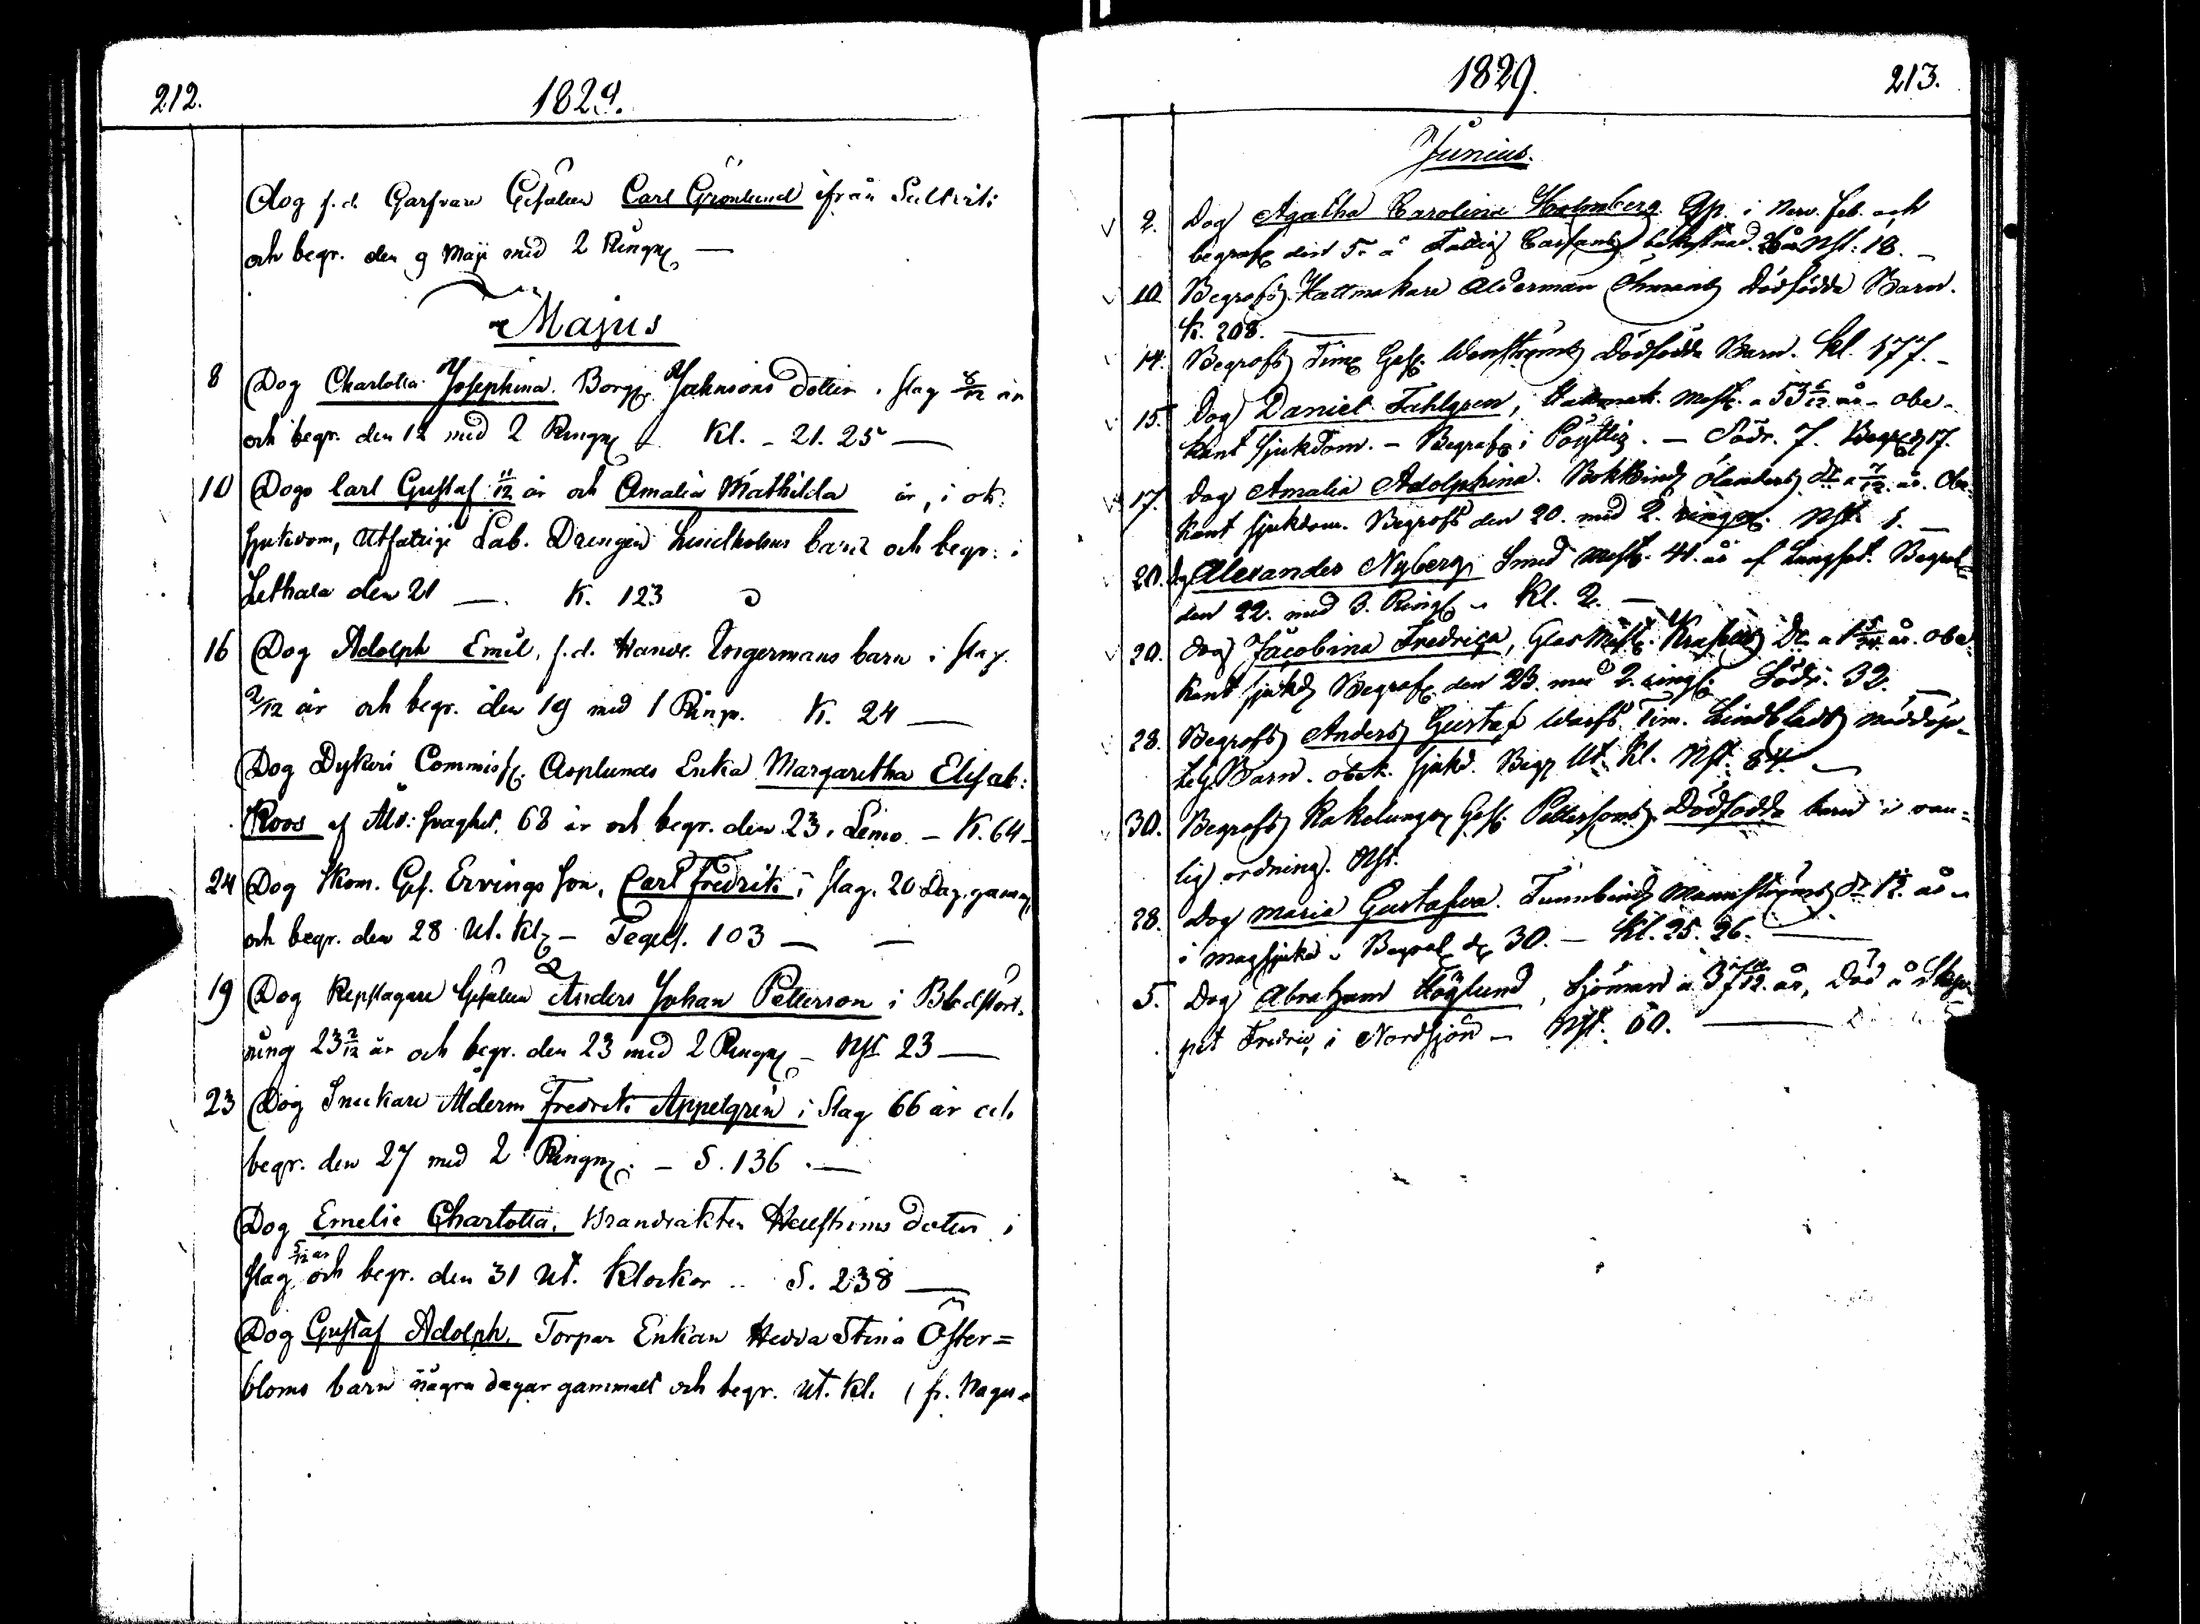 212.
1829.
Dog f.d. Garfvare Gesällen Carl Grönlund ifrån
och begr. den 9 Maji med 2 Ringn
Majus
8 Dog Charlotta Josephina. Borg. Johnsons dotter i slag 8/12 år
och begr. den 12 med 2 Ringn Kl. - 21. 25 —
10 Dogo Carl Gustaf 11/12 år och Amalia Mathilda år, i ok.
sjukdom, Utfattige Lab. Drengen barn och begr. i
Lethala den 21 — K. 123
16 Dog Adolph Emil, f.d. Handl. Ungermans barn i slag.
2/12 år och begr. den 19 med 1 Ringn. K. 24 —
Dog Dykeri Commiss. Asplunds Enka Margaretha Elisab:
Roos af Åld: svaghet. 68 år och begr. den 23 i Lemo. - K. 64 -
24 Dog Skom. Ges. Ervings son, Carl Fredrik i slag. 20 Dag. gamm.
och begr. den 28 Ut. Kl. - Tegels. 103 — —
19 Dog Repslagare Gesällen Anders Johan Petterson i Blodstört-
ning 23 2/12 år och begr. den 23 med 2 Ringn - Nst 23 —
23 Dog Snickare Ålderm Fredrik Appelgrén i Slag 66 år och
begr. den 27 med 2 Ringn. - S. 136. —
Dog Emelie Charlotta, Brandvakten dotter i
slag 5/12 år och begr. den 31 Ut. Klockor .. S. 238 —
Dog Gustaf Adolph. Torpar Enkan Hedda Stina Öster=
bloms barn några dagar gammalt och begr. Ut. Kl. (fr.
1829.
213.
Junius.
2. Dog Agatha Carolina Holmberg. Gp. i Nerv. feb. och
begrafs den 5. å Fattig Cassans bekostnad. Nst. 18. -
10. Begrofs Hattmakare Ålderman Öhmans dödfödda Barn.
K. 208. —
14. Begrofs Tim Ges. Wenströms Dödfödda Barn. Kl. 177. -
15. Dog Daniel Fahlgren, Mest. a 53 6/12 år - obe-
kant sjukdom. - Begrafs i Pöyttis. - Södr. 7. Begr. d. 17.
17. Dog Amalia Adolphina. Bokbind Ölanders dr a 7/12 år. Obe-
kant sjukdom. Begrofs den 20. med 2. ringn. Nst. 1. —
20. Dog Alexander Nyberg, Smed Mest. 41. år af Lungsot. Begrof
den 22. med 3. Ring - Kl. 2. —
20. Dog Jacobina Fredrica, Glas Mäst. Dr. a 1 5/12 år. obe-
kant sjukd Begraf. den 23. med 2. ring. Södr. 32.
28. Begrofs Anders Gustaf Warfs Tim. Lindblads nöddöp-
te G. Barn. obek. sjukd. Begr Ut. Kl. Nst. 84. —
30. Begrofs Kakelungn Ges. Petterssons Dödfödda barn i van=
lig ordning. Nst.
28. Dog Maria Gustafva. Tunnbind Mannströms dr 12. år -
i magsjukd - Begraf d 30. - Kl. 25. 26. —
5. Dog Abraham Höglund, Sjöman a år, Död å Skep-
pet Fredric i Nordsjön - Nst. 60. —